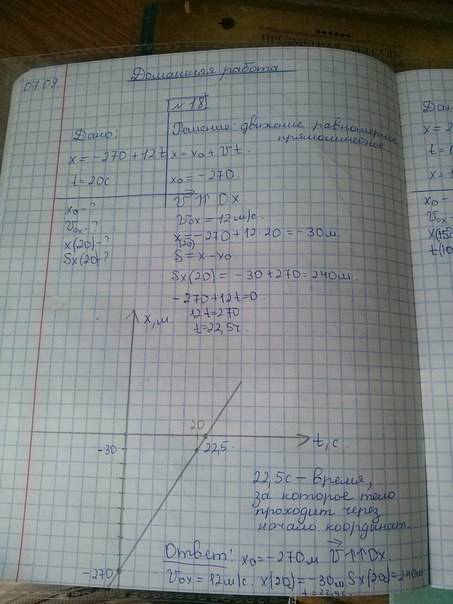 07.09
Домашняя работа
№18
Дано:
x = -270 + 12t
t = 20с
x₀ - ?
V₀ₓ - ?
x(20) - ?
Sx(20) - ?
Решение: движение равномерное
прямолинейное
x = x₀ + Vt.
x₀ = -270.
V ↑↑ Ox
V₀ₓ = 12 м/с
x(20) = -270 + 12·20 = -30м.
S = x - x₀
Sx(20) = -30 + 270 = 240м.
-270 + 12t = 0.
12t = 270
t = 22,5с
x, м
20
t, c
-30
22,5.
-270
22,5с - время,
за которое тело
проходит через
начало координат.
Ответ: x₀ = -270м V ↑↑ Ox.
V₀ₓ = 12м/с. x(20) = -30м Sx(20) = 240м
t = 22,5с.
Дано
x = 2
t = 1
x =
x₀ -
V₀ₓ -
x(15)
t(10